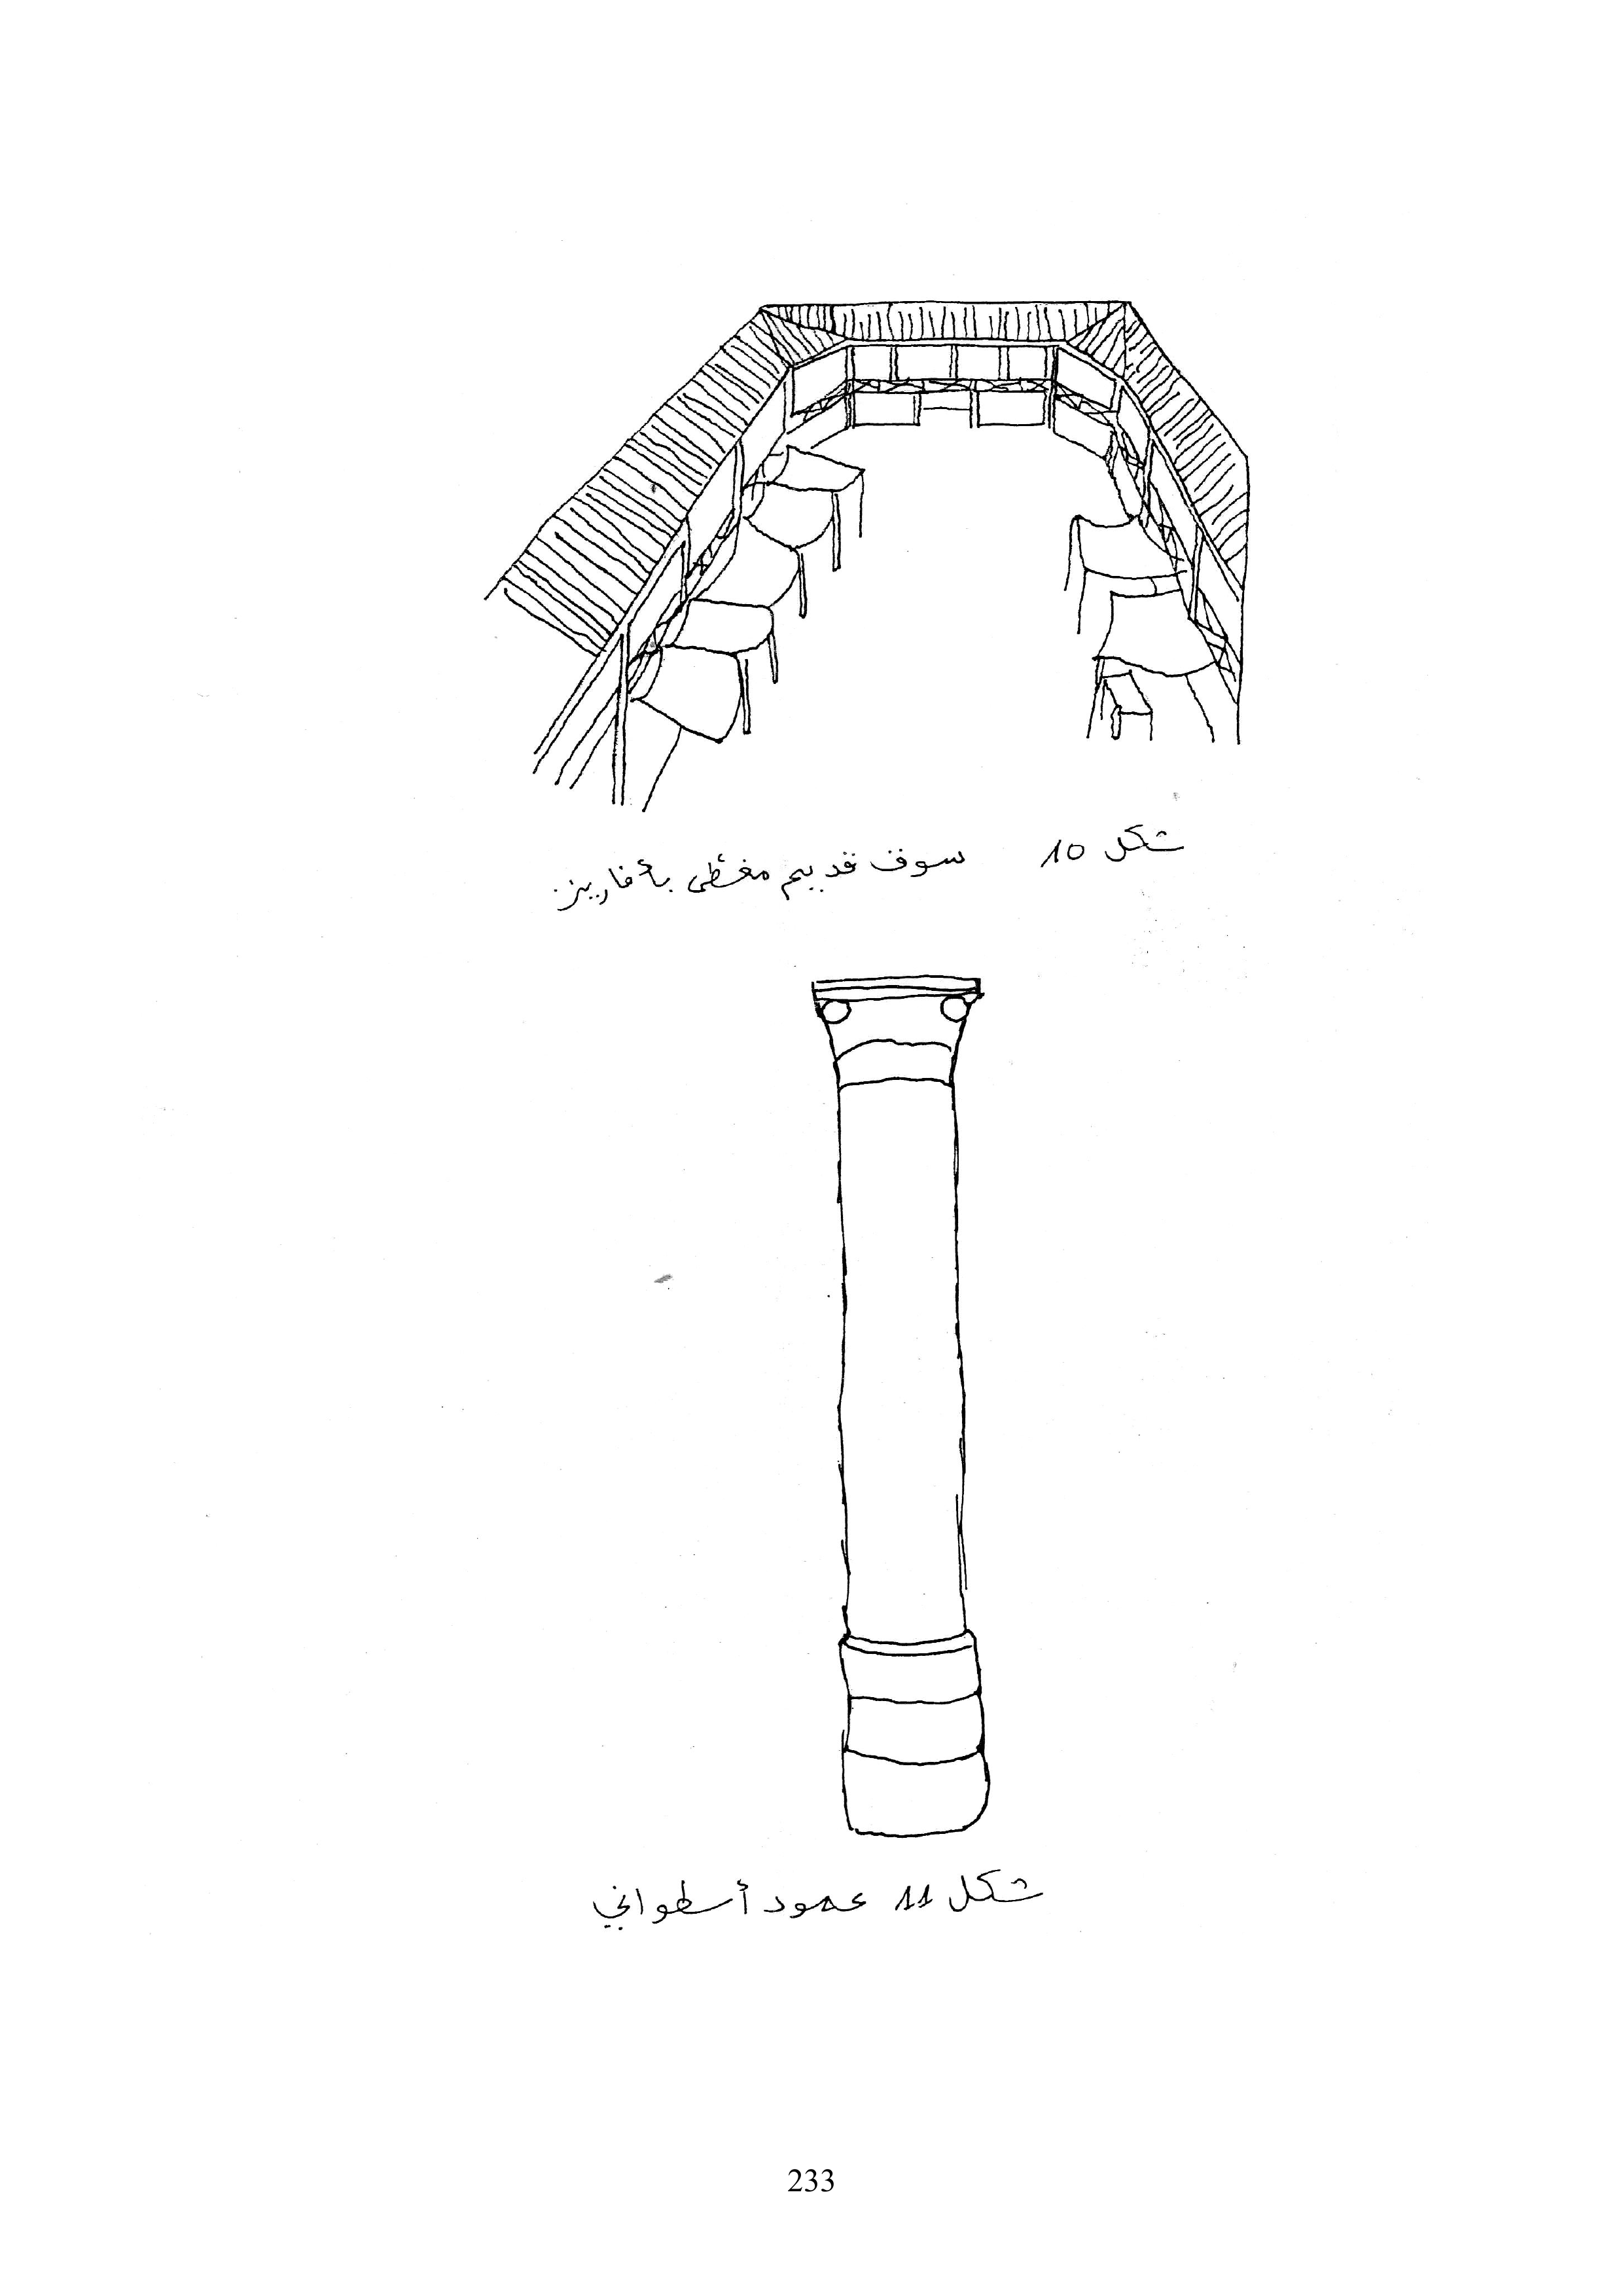 شكل 10 سوف قديم مغطى بأفاريز
شكل 11 عمود أسطواني
233